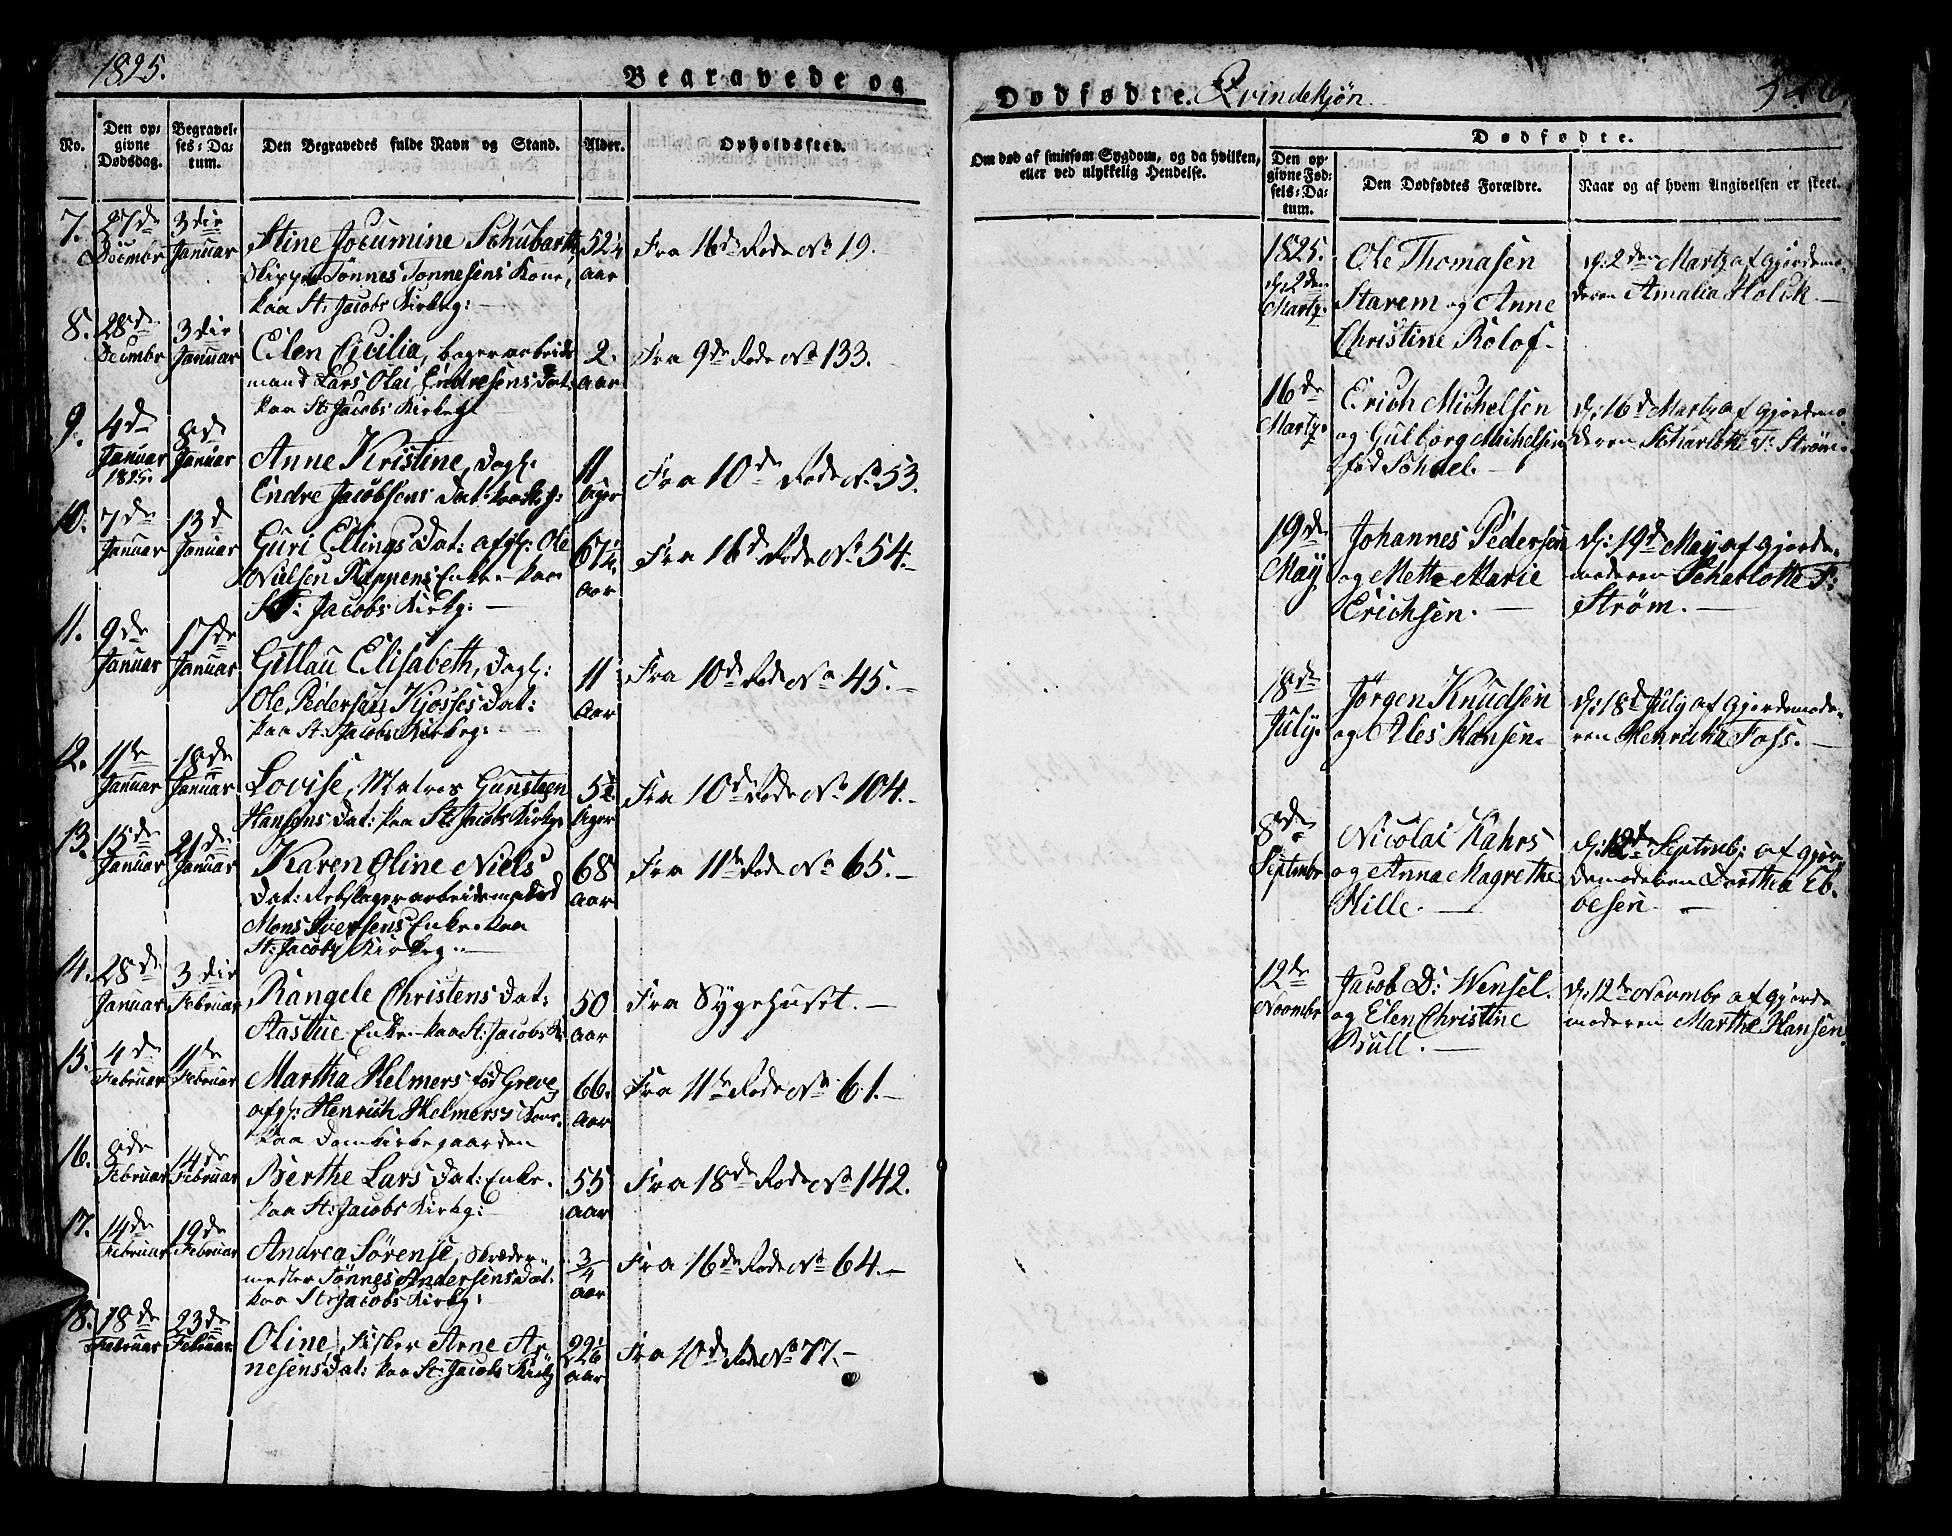 1825.
Begravede og
No.
Den op-
givne
Dødsdag.
Begravel-
ses-Da-
tum.
Den Begravedes fulde Navn og Stand.
Alder.
Opholdssted.
7.
27de
Decembr
3die
Januar
Stine Jocumine Schubarth
Skipper Tönnes Tonnesens Kone,
paa St: Jacobs Kirkeg: —
52¼
aar
Fra 16de Rode No 19.
8.
28de
Decembr
3die
Januar
Elen Cicilia, bager arbeids
mand Lars Olai Endresens Dat:
paa St: Jacobs Kirkeg
2.
aar
Fra 9de Rode No 133.
9.
4de
Januar
1825.
8de
Januar
Anne Kristine, Dagl:
Endre Jacobsens Dat: paa St. J:
11
Uger
Fra 10de Rode No 53.
10.
7de
Januar
13d
Januar
Guri Ellings Dat: afgl: Ole
Nielsen Enke. paa
St: Jacobs Kirkg: —
67¼
aar
Fra 16d Rode No 54.—
11.
9de
Januar
17de
Januar
Gitlau Elisabeth, Dagl:
Ole Pedersen Kjosses Dat:
paa St: Jacobs Kirkeg:
11
Aar
Fra 10de Rode No 45.—
12.
11te
Januar
18de
Januar
Lovise, Matros Gunsteen
Hansens Dat: paa St: Jacobs Kirkg
5½
Uger
Fra 10de Rode No 104.—
13.
15de
Januar
21de
Januar
Karen Oline Niels
Dat: Rebslager arbeidsmand
Mons Iversens Enke. paa
St: Jacobs Kirkeg. —
68
aar
Fra 11te Rode No 65.—
14.
28de
Januar
3die
Februar
Rangele Christens Dat:
Aastue Enke. paa St: Jacobs K:
50
aar
Fra Sygehuset.—
15.
4de
Februar
11te
Februar
Martha Helmers fød Greve
afgl: Henrich Helmers's Kone.
paa Domkirkegaarden
66.
aar
Fra 11te Rode No 61.—
16.
8de
Februar
14de
Februar
Berthe Lars Dat: Enke.
paa St: Jacobs Kirkg:
55
aar
Fra 18de Rode No 142.
17.
14de
Februar
19de
Februar
Andrea Sørense, Skræder
mester Tönnes Andersens Dat:
paa St: Jacobs Kirkg:
¾
aar
Fra 16de Rode No 64.—
18.
18de
Februar
23de
Februar
Oline, Fisker Arne Ar
nesens Dat: paa St: Jacobs Kirkg
22⅙
aar
Fra 10de Rode No 77.—
Dødfødte. Qvindekjøn
Om død af smitsom Sygdom, og da hvilken,
eller ved ulykkelig Hendelse.
Dødfødte.
Den op-
givne Fød-
sels-Da-
tum.
Den Dødfødtes Forældre.
Naar og af hvem Angivelsen er skeet.
1825.
d: 2den
Martz.
Ole Thomasen
Starem og Anne
Christine Rolof-
d: 2den Martz af Gjordemo-
deren Amalia Holck —
16de
Martz.
Erich Michelsen
og Gulborg Michelsen
fød Schnel. —
d: 16d Martz af Gjordemo
deren Scharlotte F: Strøm.
19de
May
Johannes Pedersen
og Mette Marie
Erichsen. —
d: 19d May af Gjorde-
moderen Scharlotte F:
Strøm. —
18de
July.
Jørgen Knudsen
og Ales Hansen.
d: 18d July af Gjordemode-
ren Henricha Foss. —
8de
Septembr
Nicolai Kahrs
og Anna Magrethe
Hille. —
d: 12d Septemb: af Gjor-
demoderen Dorthea Eb-
besen —
12de
Novembr
Jacob D: Wensel.
og Elen Christine
Bull. —
d: 12te Novembr af Gjorde
moderen Marthe Hansen.